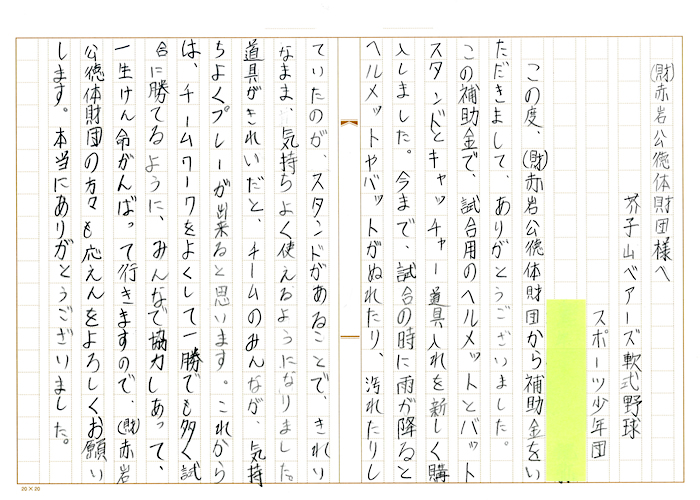 (財)赤岩公徳体財団様へ
芥子山ベアーズ軟式野球
スポーツ少年団
この度、(財)赤岩公徳体財団から補助金をい
ただきまして、ありがとうございました。
この補助金で、試合用のヘルメットとバット
スタンドとキャッチャー道具入れを新しく購
入しました。今まで、試合の時に雨が降ると
ヘルメットやバットがぬれたり、汚れたりし
ていたのが、スタンドがあることで、きれい
なまま、気持ちよく使えるようになりました。
道具がきれいだと、チームのみんなが、気持
ちよくプレーが出来ると思います。これから
は、チームワークをよくして一勝でも多く試
合に勝てるように、みんなで協力しあって、
一生けん命がんばって行きますので、(財)赤岩
公徳体財団の方々も応えんをよろしくお願い
します。本当にありがとうございました。
20×20